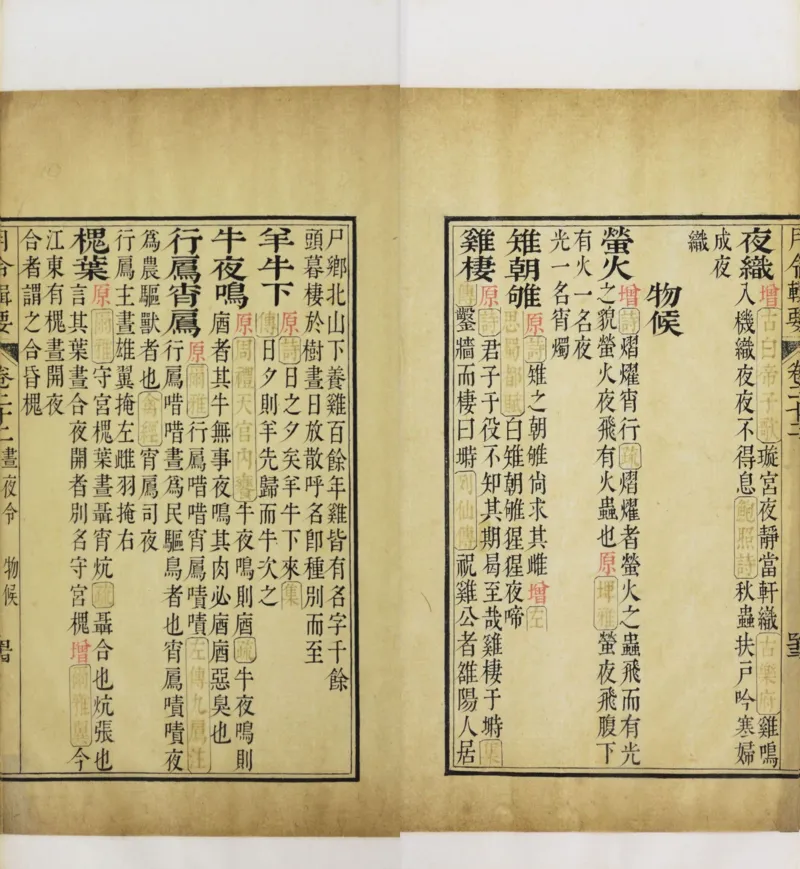 月令輯要 卷二十二
夜織 增古白帝子歌璇宮夜靜當軒織古樂府雞鳴
入機織夜夜不得息鮑照詩秋蟲扶戶吟寒婦
成夜
織
物候
螢火 增詩熠燿宵行疏熠燿者螢火之蟲飛而有光
之貌螢火夜飛有火蟲也原埤雅螢夜飛腹下
有火一名夜
光一名宵燭
雉朝雊 原詩雉之朝雊尚求其雌增左
思蜀都賦白雉朝雊猩猩夜啼
雞棲 原詩君子于役不知其期曷至哉雞棲于塒集
傳鑿牆而棲曰塒列仙傳祝雞公者雒陽人居
尸鄉北山下養雞百餘年雞皆有名字千餘
頭暮棲於樹晝日放散呼名卽種別而至
羊牛下 原詩日之夕矣羊牛下來集
傳日夕則羊先歸而牛次之
牛夜鳴 原周禮天官內饔牛夜鳴則庮疏牛夜鳴則
庮者其牛無事夜鳴其肉必庮庮惡臭也
行鳸宵鳸 原爾雅行鳸唶唶宵鳸嘖嘖左傳九鳸註
行鳸唶唶晝爲民驅鳥者也宵鳸嘖嘖夜
爲農驅獸者也禽經宵鳸司夜
行鳸主晝雄翼掩左雌羽掩右
槐葉 原爾雅守宮槐葉晝聶宵炕疏聶合也炕張也
言其葉晝合夜開者別名守宮槐增爾雅翼今
江東有槐晝開夜
合者謂之合昏槐
月令輯要 卷二十二 晝夜令 物候